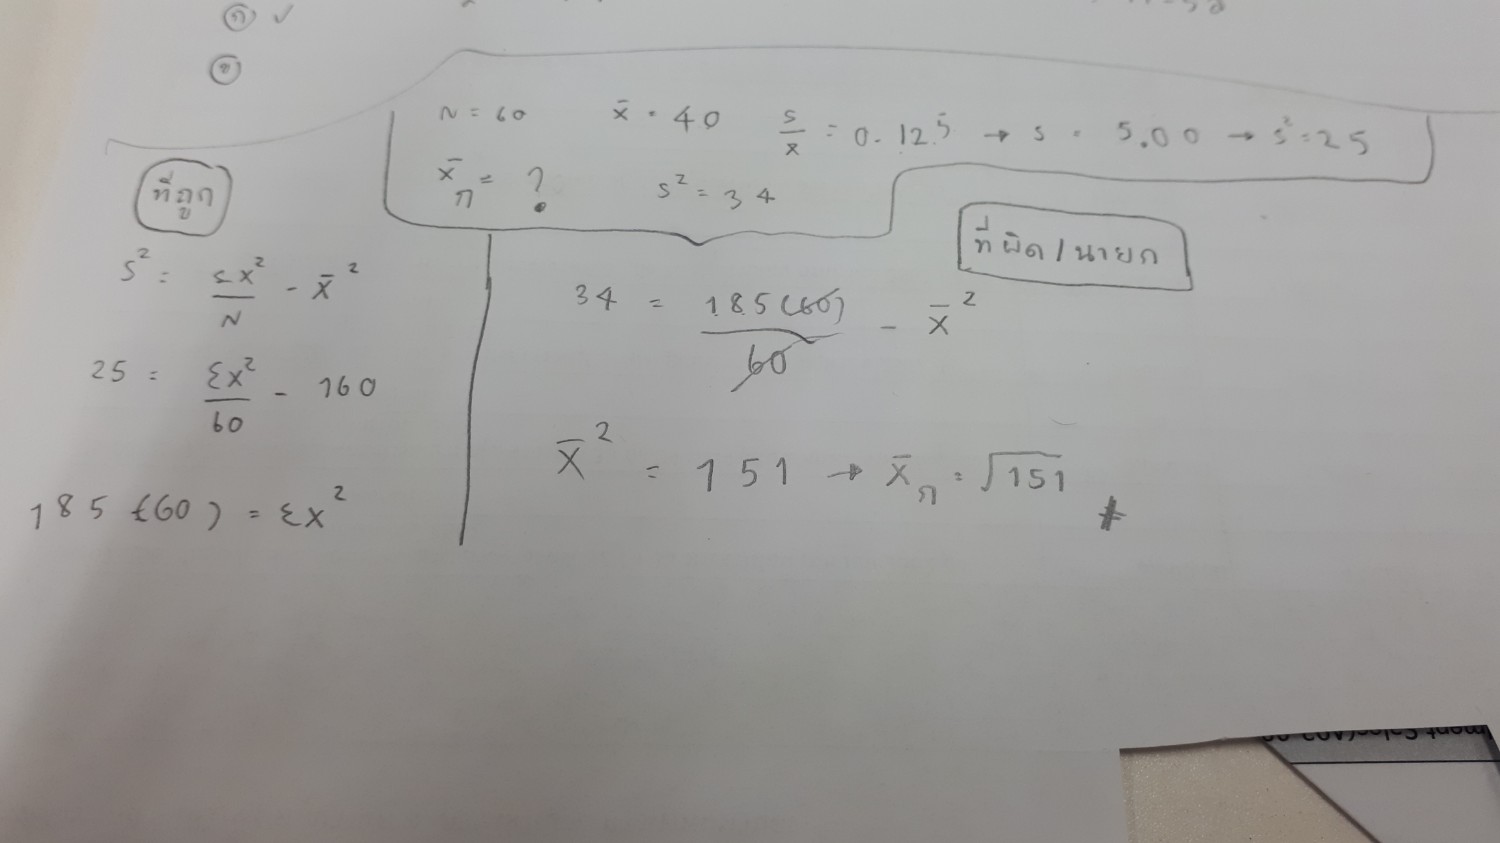 ก ✓
ข
N = 60 x̄ = 40 s/x̄ = 0.125 → s = 5.00 → s² = 25
x̄ก = ? s² = 34
ที่ถูก
s² = Σx²/N - x̄²
25 = Σx²/60 - 160
185 (60) = Σx²
ที่ผิด / นายก
34 = 185(60)/60 - x̄²
x̄² = 151 → x̄ก = √151 #